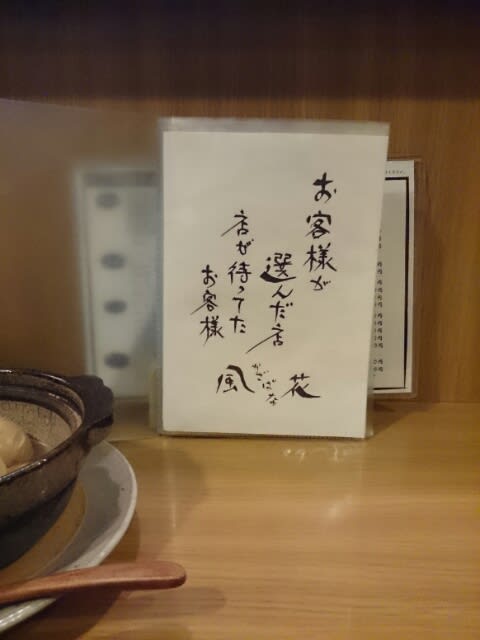 お客様が
選んだ店
店が待ってた
お客様
風花
かざばな